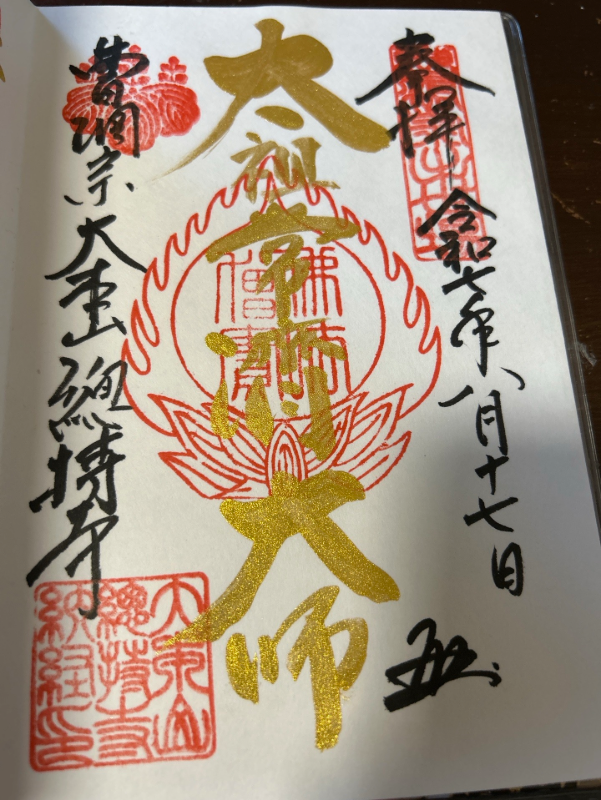 奉拝
令和七年八月十七日
太祖常済大師
佛法僧寶
曹洞宗大本山總持寺
大本山
總持寺
納経印